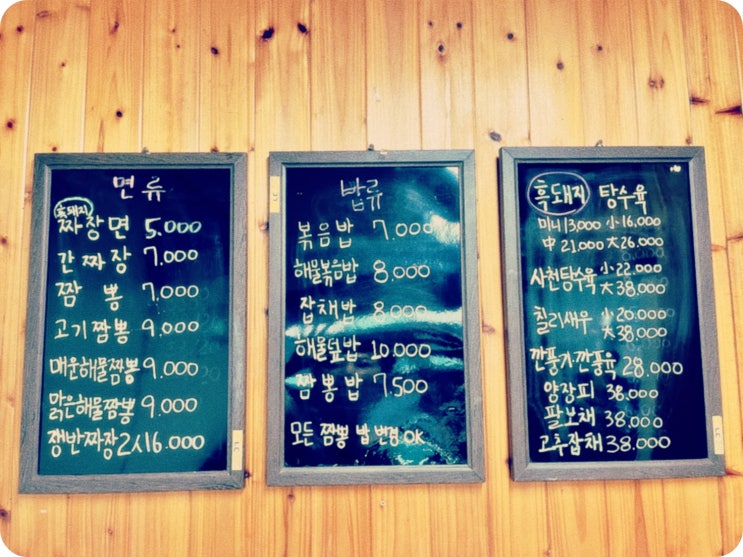 면 류
흑돼지
짜장면 5.000
간짜장 7.000
짬 뽕 7,000
고기짬뽕 9,000
매운해물짬뽕 9.000
맑은해물짬뽕 9.000
쟁반짜장 2人16.000
밥류
볶음밥 7.000
해물볶음밥 8,000
잡채밥 8.000
해물덮밥 10.000
짬뽕밥 7,500
모든 짬뽕 밥 변경 OK
흑돼지 탕수육
미니13,000 小16,000
中 21.000 大26.000
사천탕수육 小22.000
大38.000
칠리새우 小20.000
大38.000
깐풍기깐풍육 28.000
양장피 38,000
팔보채 38,000
고추잡채 38.000